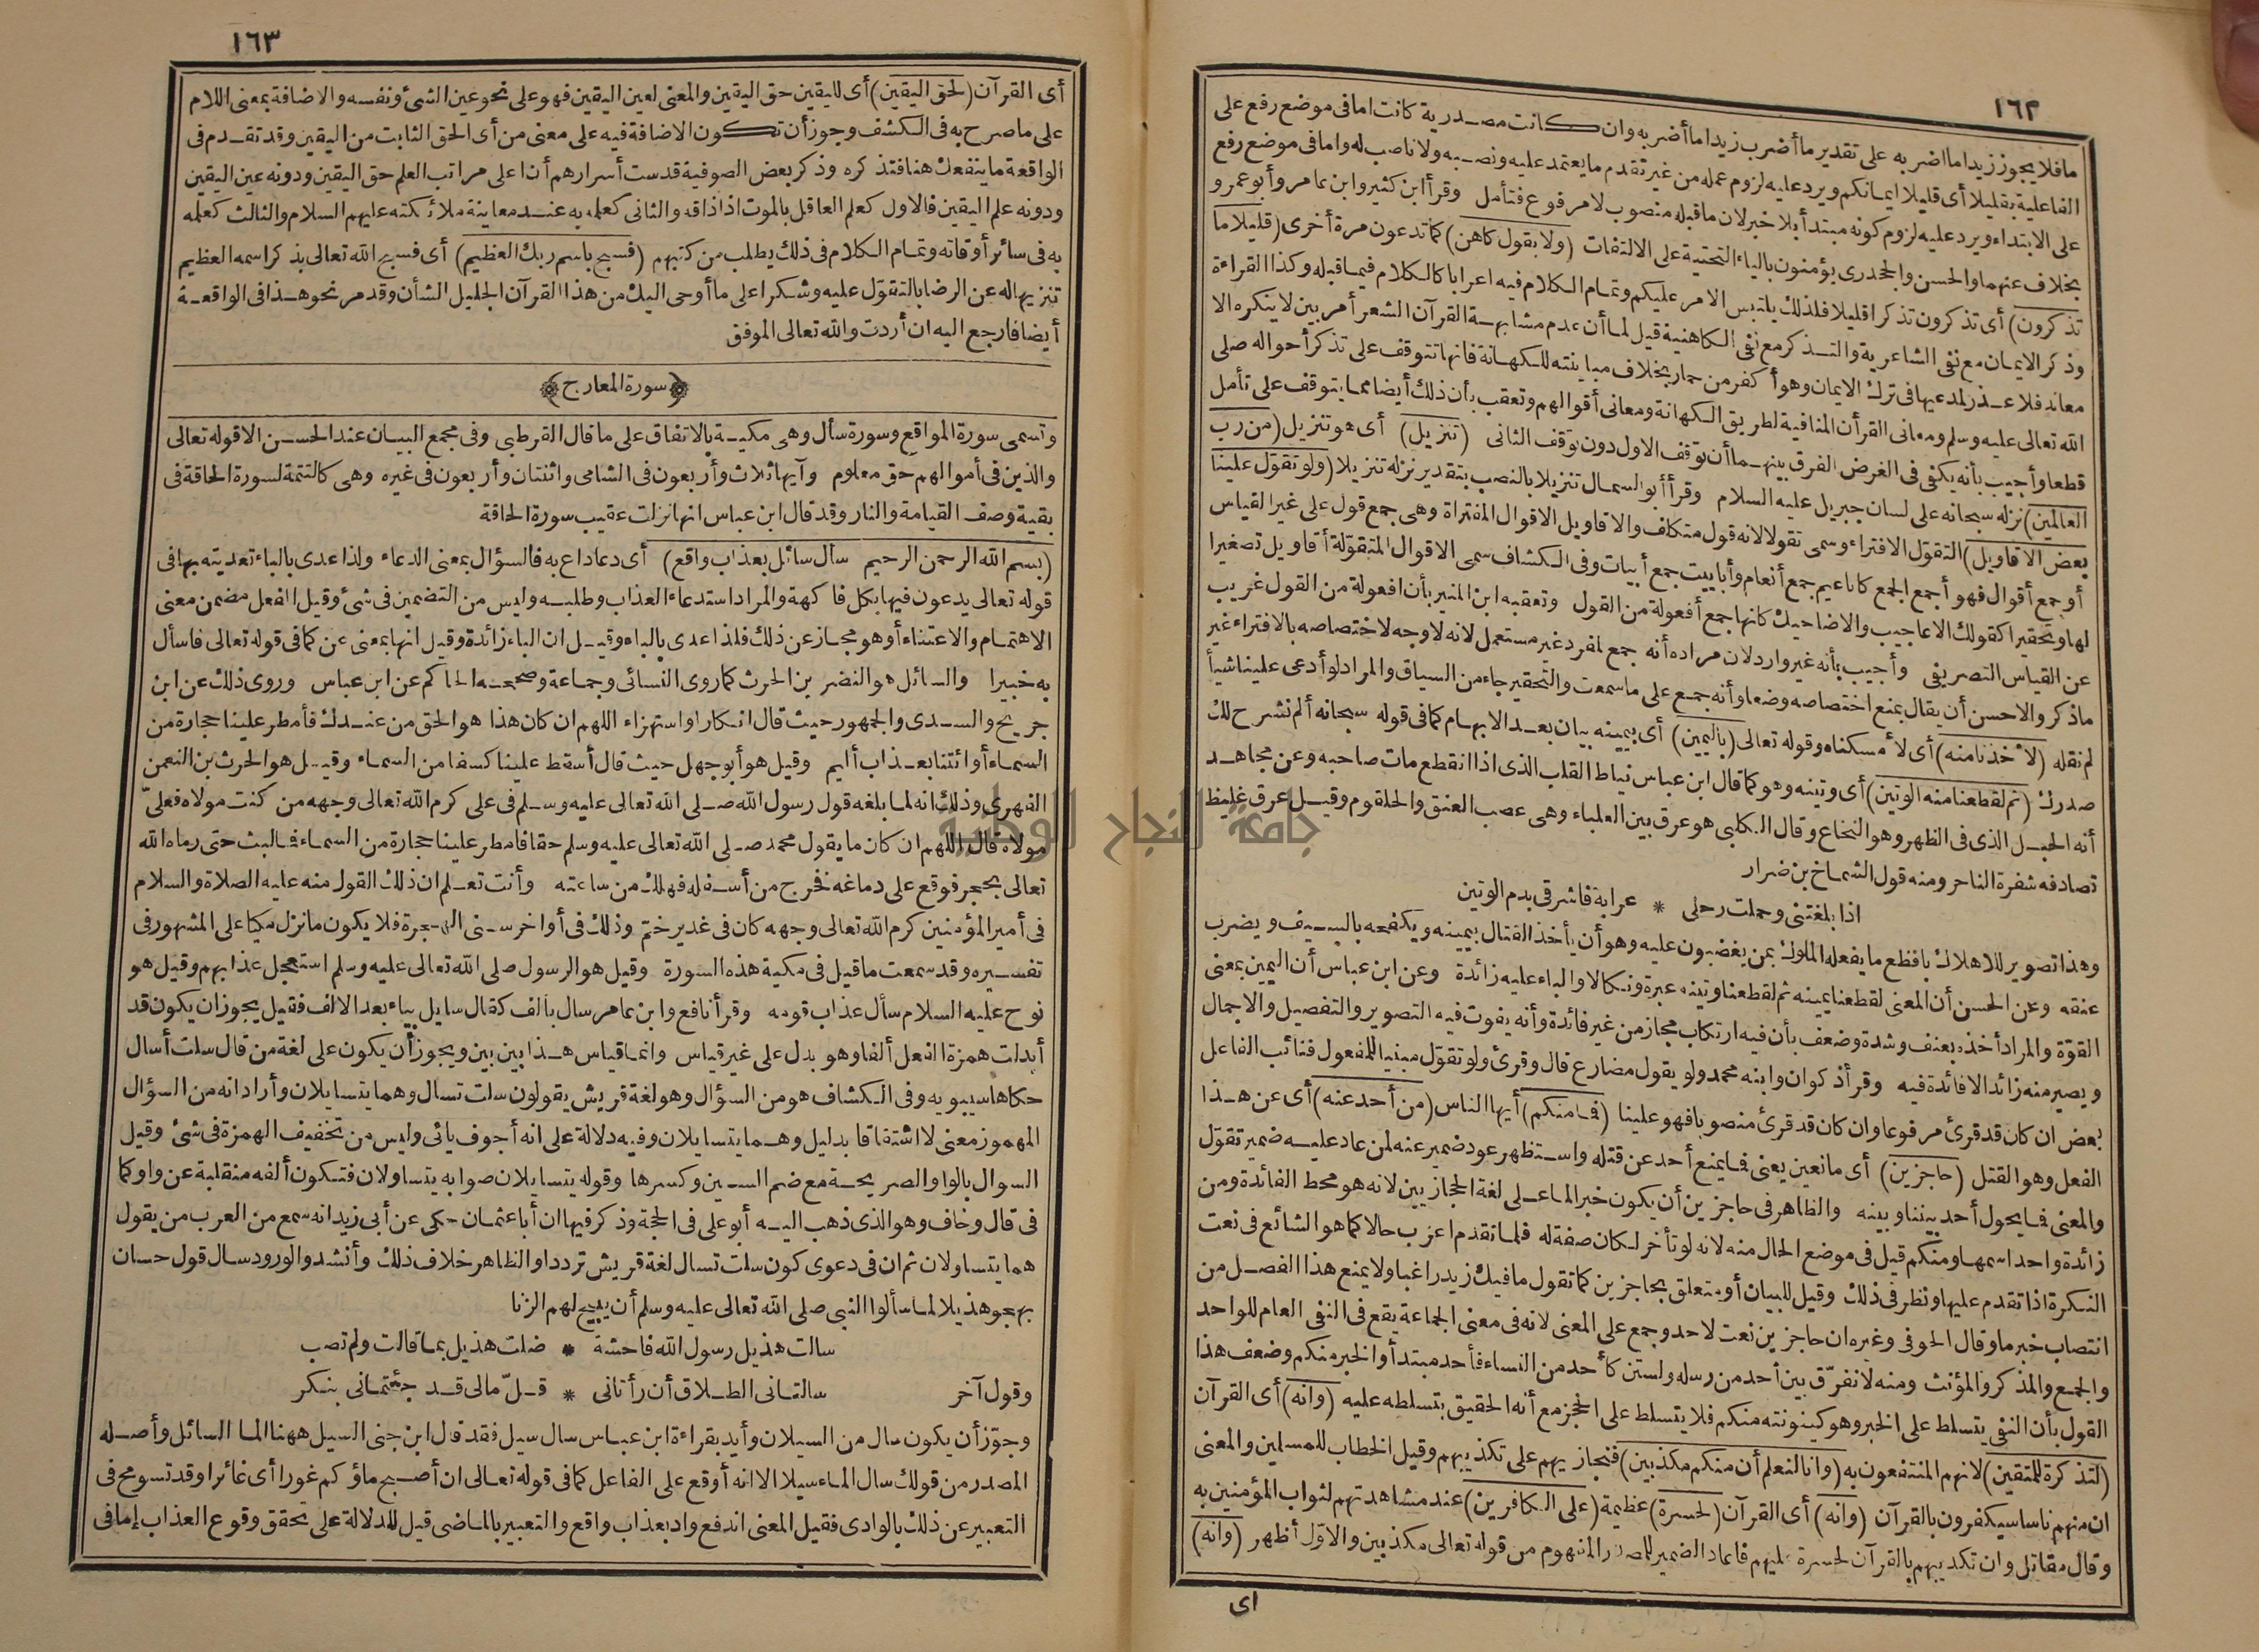 ١٦٢
ما فلا يجوز زيدا ما اضربه على تقدير ما أضرب زيدا ما أضربه وان كانت مصدرية كانت اما فى موضع رفع على
الفاعلية بقليلا أى قليلا ايمانكم ويرد عليه لزوم عمله من غير تقدم ما يعتمد عليه ونصبه ولا ناصب له واما فى موضع رفع
على الابتداء ويرد عليه لزوم كونه مبتدأ بلا خبر لان ما قبله منصوب لا مرفوع فتأمل وقرأ ابن كثير وابن عامر وأبو عمرو
بخلاف عنهما والحسن والجحدرى يؤمنون بالياء التحتية على الالتفات (ولا بقول كاهن) كما تدعون مرة أخرى (قليلا ما
تذكرون) أى تذكرون تذكرا قليلا فلذلك يلتبس الامر عليكم وتمام الكلام فيه اعرابا كالكلام فيما قبله وكذا القراءة
وذكر الايمان مع نفى الشاعرية والتذكر مع نفى الكاهنية قيل لما أن عدم مشابهة القرآن الشعر أمر بين لا ينكره الا
معاند فلا عذر لمدعيها فى ترك الايمان وهو أكفر من حمار بخلاف مباينته للكهانة فانها تتوقف على تذكر أحواله صلى
الله تعالى عليه وسلم ومعانى القرآن المنافية لطريق الكهانة ومعانى أقوالهم وتعقب بأن ذلك أيضا مما يتوقف على تأمل
قطعا وأجيب بأنه يكفى فى الغرض الفرق بينهما أن توقف الاول دون توقف الثانى (تنزيل) أى هو تنزيل (من رب
العالمين) نزله سبحانه على لسان جبريل عليه السلام وقرأ أبو السمال تنزيلا بالنصب بتقدير نزله تنزيلا (ولو تقول علينا
بعض الاقاويل) التقول الافتراء وسمى تقولا لانه قول متكلف والاقاويل الاقوال المفتراة وهى جمع قول على غير القياس
أو جمع أقوال فهو أجمع الجمع كاناعيم جمع أنعام وأبابيت جمع أبيات وفى الكشاف سمى الاقوال المتقولة أقاويل تصغيرا
لها وتحقيرا كقولك الاعاجيب والاضاحيك كانها جمع أفعولة من القول وتعقبه ابن المنير بأن افعولة من القول غريب
عن القياس التصريفى وأجيب بأنه غير وارد لان مراده أنه جمع لمفرد غير مستعمل لانه لا وجه لاختصاصه بالافتراء غير
ما ذكر والاحسن أن يقال بمنع اختصاصه وضعا وأنه جمع على ما سمعت والتحقير جاء من السياق والمراد لو أدعى علينا شيأ
لم نقله (لأخذنا منه) أى لأمسكناه وقوله تعالى (باليمين) أى بيمينه بيان بعد الابهام كما فى قوله سبحانه ألم نشرح لك
صدرك (ثم لقطعنا منه الوتين) أى وتينه وهو كما قال ابن عباس نياط القلب الذى اذا انقطع مات صاحبه وعن مجاهد
أنه الحبل الذى فى الظهر وهو النخاع وقال الكلبى هو عرق بين العلباء وهى عصب العنق والحلقوم وقيل عرق غليظ
تصادفه شفرة الناحر ومنه قول الشماخ بن ضرار
اذا بلغتنى وحملت رحلى * عرابة فاشرقى بدم الوتين
وهذا تصوير للاهلاك بافظع ما يفعله الملوك بمن يغضبون عليه وهو أن يأخذ القتال بيمينه ويكفحه بالسيف ويضرب
عنقه وعن الحسن أن المعنى لقطعنا يمينه ثم لقطعنا وتينه عبرة ونكالا والباء عليه زائدة وعن ابن عباس أن اليمين بمعنى
القوة والمراد أخذه بعنف وشدة وضعف بأن فيه ارتكاب مجاز من غير فائدة وأنه يفوت فيه التصوير والتفصيل والاجمال
ويصير منه زائدا لا فائدة فيه وقرأ ذكوان وابنه محمد ولو يقول مضارع قال وقرئ ولو تقول مبنيا للمفعول فنائب الفاعل
بعض ان كان قد قرئ مرفوعا وان كان قد قرئ منصوبا فهو علينا (فما منكم) أيها الناس (من أحد عنه) أى عن هذا
الفعل وهو القتل (حاجزين) أى مانعين يعنى فما يمنع أحد عن قتله واستظهر عود ضمير عنه لمن عاد عليه ضمير تقول
والمعنى فما يحول أحد بيننا وبينه والظاهر فى حاجزين أن يكون خبرا لما على لغة الحجازيين لانه هو محط الفائدة ومن
زائدة وأحد اسمها ومنكم قيل فى موضع الحال منه لانه لو تأخر لكان صفة له فلما تقدم اعرب حالا كما هو الشائع فى نعت
النكرة اذا تقدم عليها ونظر فى ذلك وقيل للبيان أو متعلق بحاجزين كما تقول ما فيك زيد راغبا ولا يمنع هذا الفصل من
انتصاب خبر ما وقال الحوفى وغيره ان حاجزين نعت لاحد وجمع على المعنى لانه فى معنى الجماعة يقع فى النفى العام للواحد
والجمع والمذكر والمؤنث ومنه لا نفرّق بين أحد من رسله ولستن كأحد من النساء فأحد مبتدأ والخبر منكم وضعف هذا
القول بأن النفى يتسلط على الخبر وهو كينونته منكم فلا يتسلط على الحجز مع أنه الحقيق بتسلطه عليه (وانه) أى القرآن
(لتذكرة للمتقين) لانهم المنتفعون به (وانا لنعلم أن منكم مكذبين) فنجازيهم على تكذيبهم وقيل الخطاب للمسلمين والمعنى
ان منهم ناسا سيكفرون بالقرآن (وانه) أى القرآن (لحسرة) عظيمة (على الكافرين) عند مشاهدتهم لثواب المؤمنين به
وقال مقاتل وان تكذيبهم بالقرآن لحسرة عليهم فاعاد الضمير للمصدر المفهوم من قوله تعالى مكذبين والاول أظهر (وانه)
اى
١٦٣
أى القرآن (لحق اليقين) أى لليقين حق اليقين والمعنى لعين اليقين فهو على نحو عين الشئ ونفسه والاضافة بمعنى اللام
على ما صرح به فى الكشف وجوز أن تكون الاضافة فيه على معنى من أى الحق الثابت من اليقين وقد تقدم فى
الواقعة ما ينفعك هنا فتذكره وذكر بعض الصوفية قدست أسرارهم أن اعلى مراتب العلم حق اليقين ودونه عين اليقين
ودونه علم اليقين فالاول كعلم العاقل بالموت اذا ذاقه والثانى كعلمه به عند معاينة ملائكته عليهم السلام والثالث كعلمه
به فى سائر أوقاته وتمام الكلام فى ذلك يطلب من كتبهم (فسبح باسم ربك العظيم) أى فسبح الله تعالى بذكر اسمه العظيم
تنزيها له عن الرضا بالتقول عليه وشكرا على ما أوحى اليك من هذا القرآن الجليل الشأن وقد مر نحو هذا فى الواقعة
أيضا فارجع اليه ان أردت والله تعالى الموفق
﴿سورة المعارج﴾
وتسمى سورة المواقع وسورة سأل وهى مكية بالاتفاق على ما قال القرطبى وفى مجمع البيان عند الحسن الا قوله تعالى
والذين فى أموالهم حق معلوم وآيها ثلاث وأربعون فى الشامى واثنتان وأربعون فى غيره وهى كالتتمة لسورة الحاقة فى
بقية وصف القيامة والنار وقد قال ابن عباس انها نزلت عقيب سورة الحاقة
(بسم الله الرحمن الرحيم سأل سائل بعذاب واقع) أى دعا داع به فالسؤال بمعنى الدعاء ولذا عدى بالباء تعديته بها فى
قوله تعالى يدعون فيها بكل فاكهة والمراد استدعاء العذاب وطلبه وليس من التضمين فى شئ وقيل الفعل مضمن معنى
الاهتمام والاعتناء أو هو مجاز عن ذلك فلذا عدى بالباء وقيل ان الباء زائدة وقيل انها بمعنى عن كما فى قوله تعالى فاسأل
به خبيرا والسائل هو النضر بن الحرث كما روى النسائى وجماعة وصححه الحاكم عن ابن عباس وروى ذلك عن ابن
جريج والسدى والجمهور حيث قال انكارا واستهزاء اللهم ان كان هذا هو الحق من عندك فأمطر علينا حجارة من
السماء أو ائتنا بعذاب أليم وقيل هو أبو جهل حيث قال أسقط علينا كسفا من السماء وقيل هو الحرث بن النعمن
الفهرى وذلك انه لما بلغه قول رسول الله صلى الله تعالى عليه وسلم فى على كرم الله تعالى وجهه من كنت مولاه فعلىّ
مولاه قال اللهم ان كان ما يقول محمد صلى الله تعالى عليه وسلم حقا فامطر علينا حجارة من السماء فما لبث حتى رماه الله
تعالى بحجر فوقع على دماغه فخرج من أسفله فهلك من ساعته وأنت تعلم ان ذلك القول منه عليه الصلاة والسلام
فى أمير المؤمنين كرم الله تعالى وجهه كان فى غدير ختم وذلك فى أواخر سنى الهجرة فلا يكون ما نزل مكيا على المشهور فى
تفسيره وقد سمعت ما قيل فى مكية هذه السورة وقيل هو الرسول صلى الله تعالى عليه وسلم استعجل عذابهم وقيل هو
نوح عليه السلام سأل عذاب قومه وقرأ نافع وابن عامر سال بألف كقال سايل بياء بعد الالف فقيل يجوز ان يكون قد
أبدلت همزة الفعل ألفا وهو بدل على غير قياس وانما قياس هذا بين بين ويجوز أن يكون على لغة من قال سلت أسال
حكاها سيبويه وفى الكشاف هو من السؤال وهو لغة قريش يقولون سلت تسال وهما يتسايلان وأراد انه من السؤال
المهموز معنى لا اشتقاقا بدليل وهما يتسايلان وفيه دلالة على انه أجوف يائى وليس من تخفيف الهمزة فى شئ وقيل
السوال بالواو الصريحة مع ضم السين وكسرها وقوله يتسايلان صوابه يتساولان فتكون ألفه منقلبة عن واو كما
فى قال وخاف وهو الذى ذهب اليه أبو على فى الحجة وذكر فيها ان أبا عثمان حكى عن أبى زيد انه سمع من العرب من يقول
هما يتساولان ثم ان فى دعوى كون سلت تسال لغة قريش ترددا والظاهر خلاف ذلك وأنشدوا لورود سال قول حسان
يهجو هذيلا لما سألوا النبى صلى الله تعالى عليه وسلم أن يبيح لهم الزنا
سالت هذيل رسول الله فاحشة * ضلت هذيل بما قالت ولم تصب
وقول آخر سالتانى الطلاق أن رأتانى * قلّ مالى قد جئتمانى بنكر
وجوّز أن يكون سال من السيلان وأيد بقراءة ابن عباس سال سيل فقد قال ابن جنى السيل ههنا الماء السائل وأصله
المصدر من قولك سال الماء سيلا الا انه أوقع على الفاعل كما فى قوله تعالى ان أصبح ماؤكم غورا أى غائرا وقد تسومح فى
التعبير عن ذلك بالوادى فقيل المعنى اندفع واد بعذاب واقع والتعبير بالماضى قيل للدلالة على تحقق وقوع العذاب إما فى
جامعة النجاح الوطنية